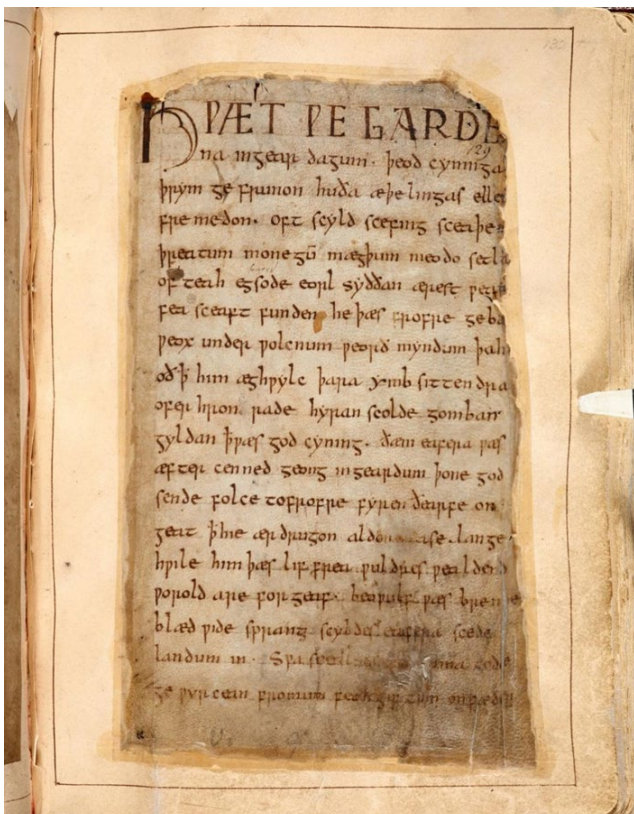 HǷÆT ǷE GARDE
129
na ingear dagum. þeod cyninga
þrym ge frunon huða æþelingas elle
fre medon. oft scyld scefing sceaþe
þreatum monegū mægþum meodo setla
of teah egsode eorl syððan ærest ƿear
fea sceaft funden he þæs frofre geba
ƿeox under ƿolcnum ƿeorð myndum þah
oð ꝥ him æghƿylc þara ymb sittendra
ofer hron rade hyran scolde gomban
gyldan ꝥ ƿæs god cyning. ðæm eafera ƿæs
æfter cenned geong in geardum þone god
sende folce tofrofre fyren ðearfe on
geat ꝥ hie ær drugon lange
hƿile him þæs lif frea ƿuldres ƿealdend
ƿorold are for geaf. beoƿulf ƿæs breme
blæd ƿide sprang scyldes eafera scede
landum in. Sƿa gode
ge ƿyrcean fromum feoh giftum on fæder